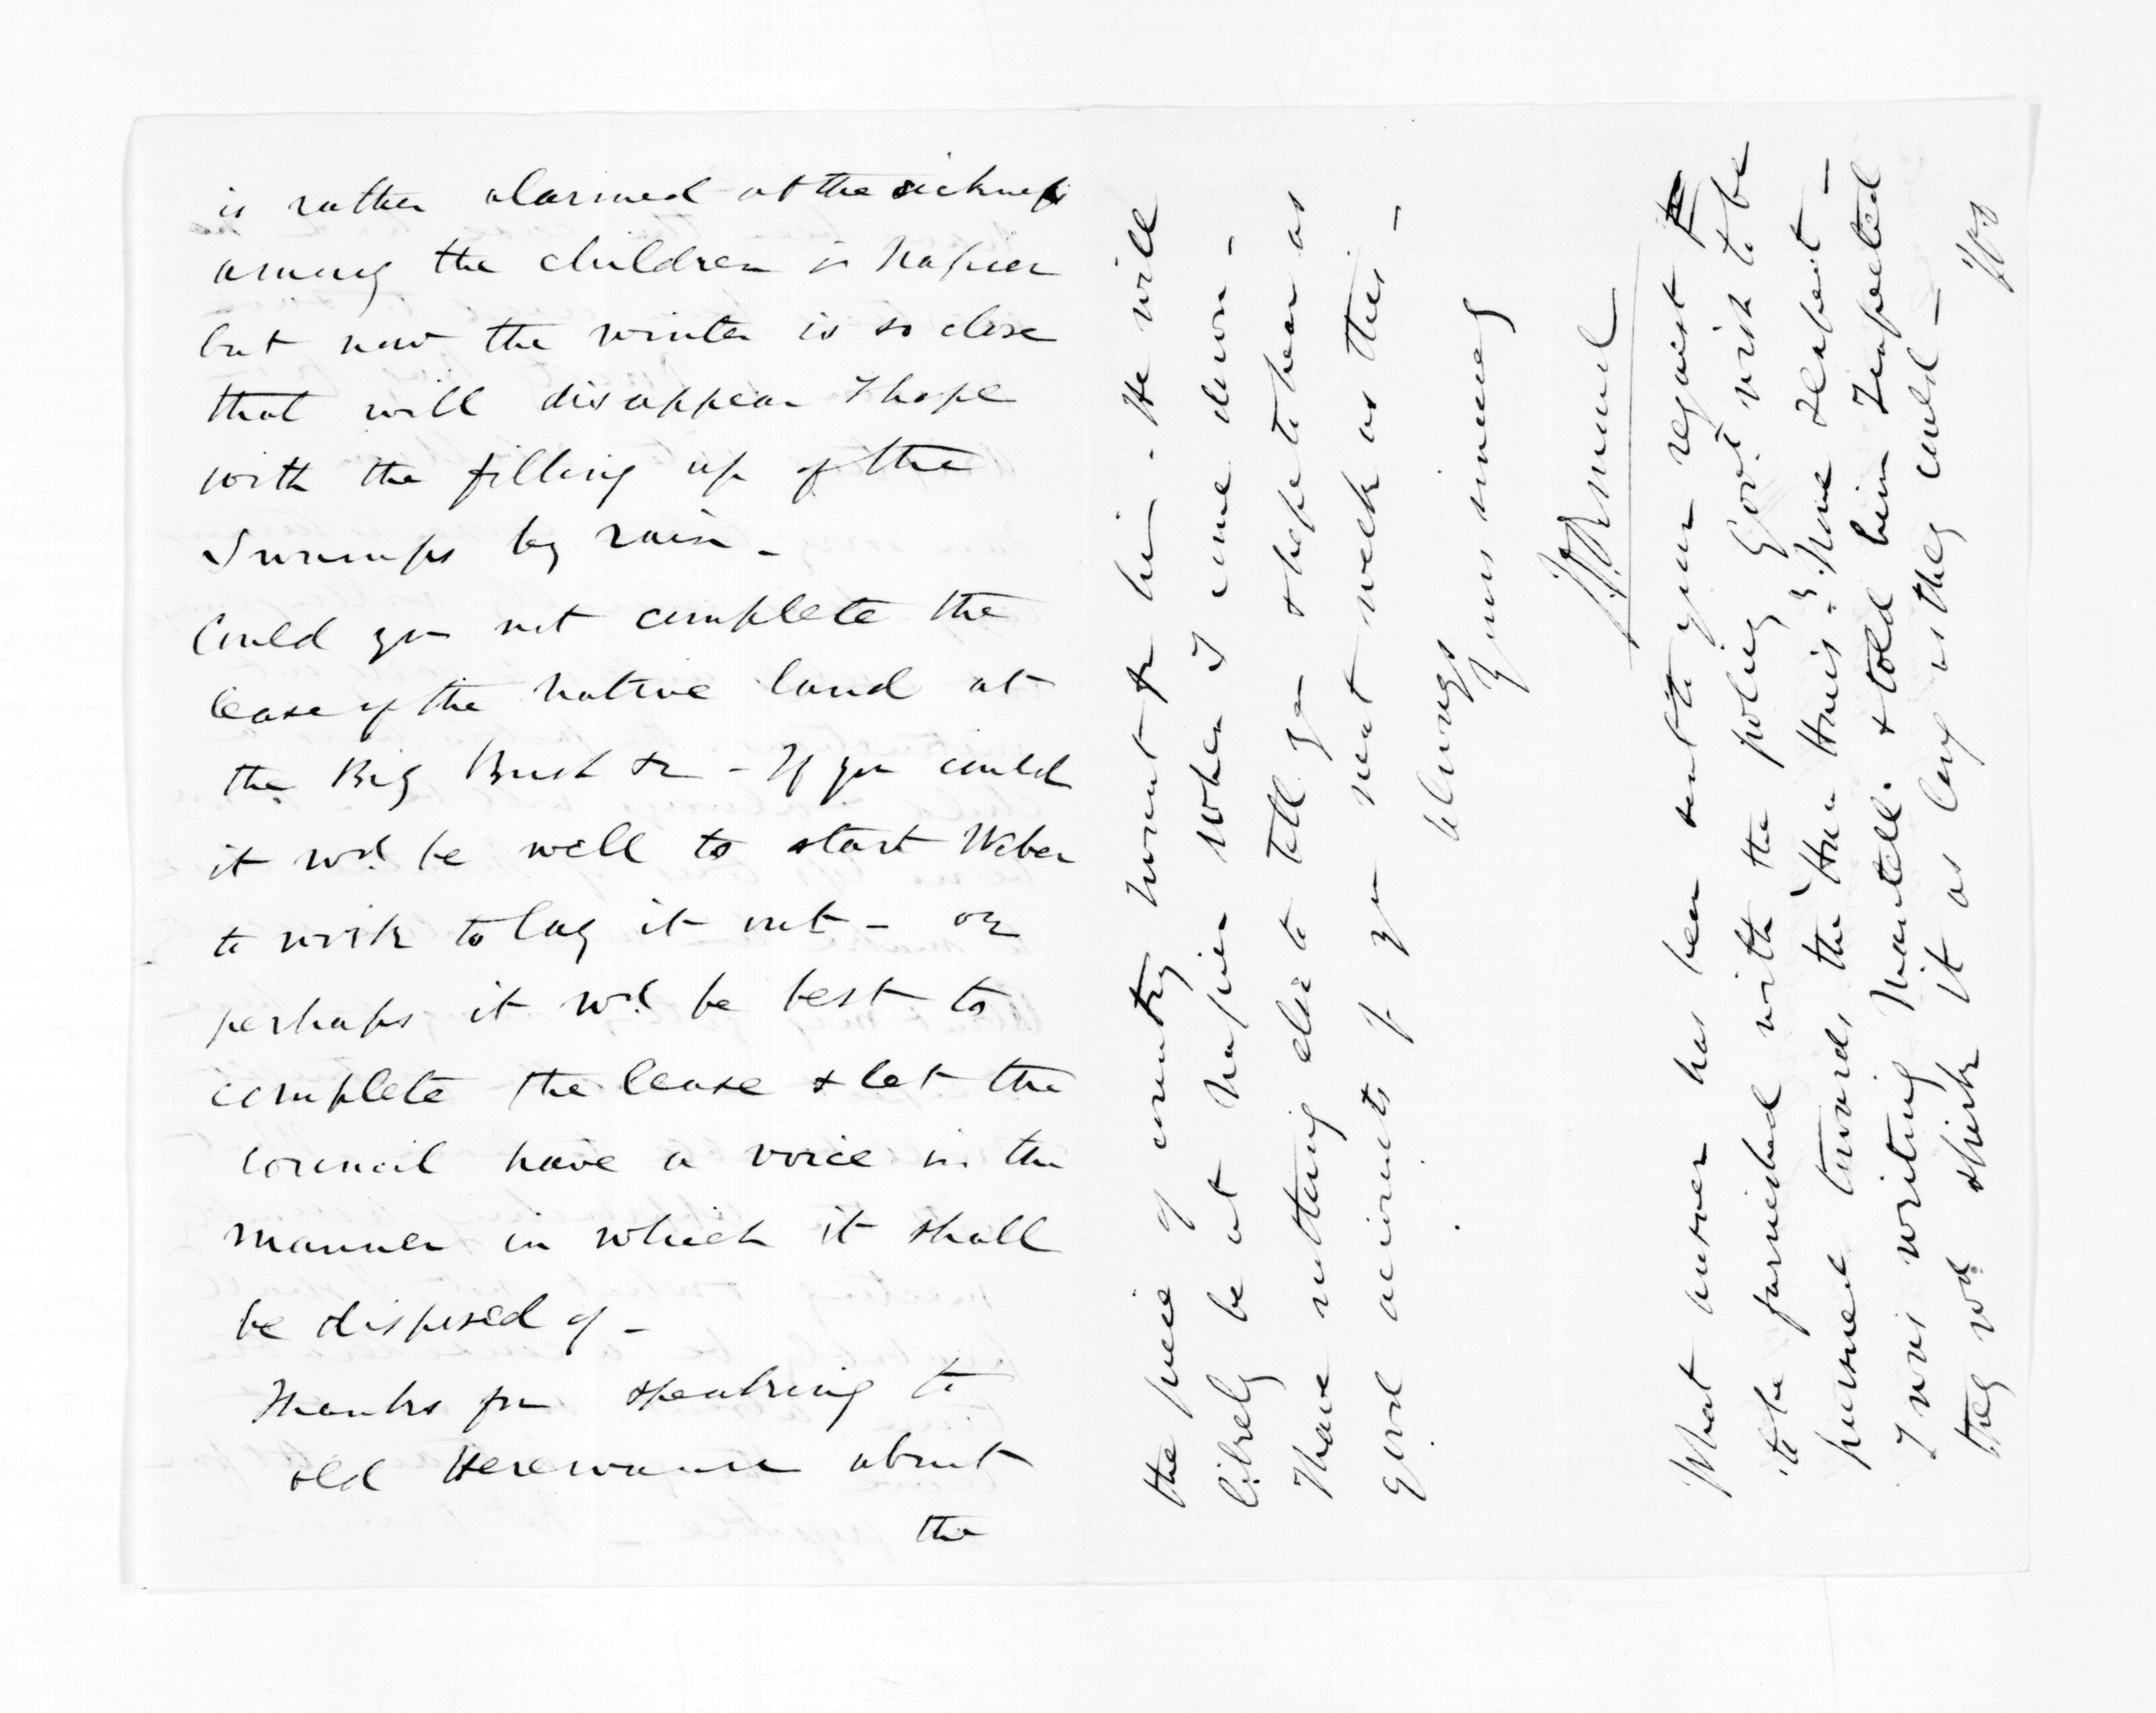 is rather alarmed at the sickness
among the children in Napier
but now the winter is so close
that will disappear I hope
with the filling up of the
Swamps by rain -
Could you not complete the
lease of the native land at
the Big Bush &c - If you could
it wd. be well to start Weber
to work to lay it out - or
perhaps it wd. be best to
complete the lease & let the
Council have a voice in the
manner in which it shall
be disposed of -
Thanks for speaking to
old about
the
the piece of country for him. He will
likely be at Napier when I come down -
I have nothing else to tell you & hope to hear as
good accounts of you next week as this -
always
Yours sincerely
What answer has been sent to your request
"to be furnished with the policy Govt. wish to be
pursued towards the Hau Haus". None I expect -
I was writing Mantell & told him I expected
they wd. shirk it as long as they could -